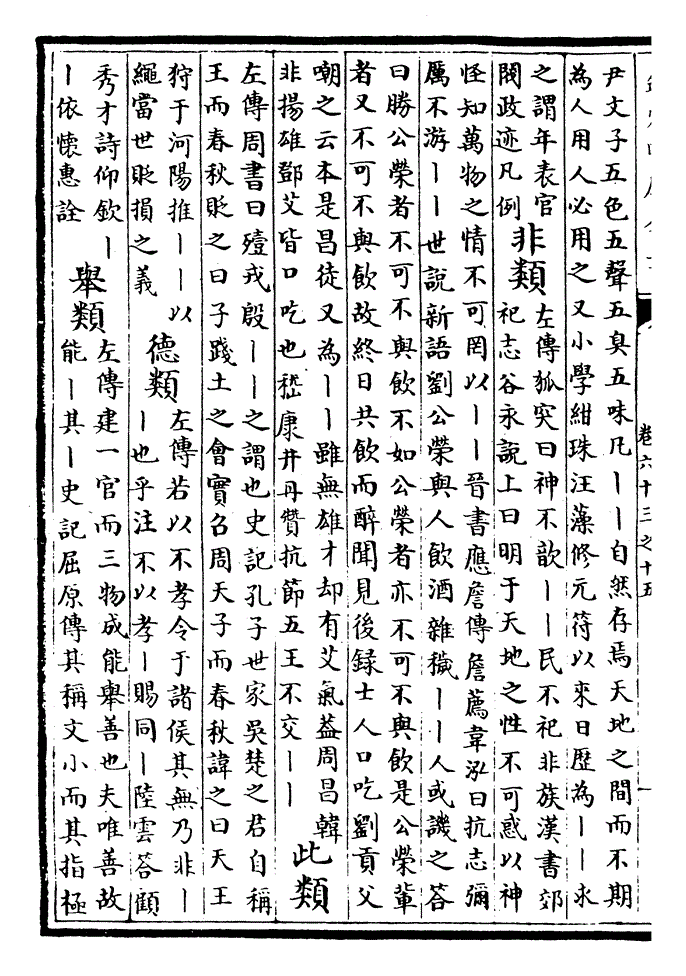 卷六十三之十五
尹文子五色五聲五臭五味凡丨丨自然存焉天地之間而不期
為人用人必用之又小學紺珠汪藻修元符以來日歷為丨丨求
之謂年表官
閥政迹凡例
非類
左傳狐突曰神不歆丨丨民不祀非族漢書郊
祀志谷永說上曰明于天地之性不可惑以神
怪知萬物之情不可罔以丨丨晉書應詹傳詹薦韋泓曰抗志彌
厲不游丨丨世說新語劉公榮與人飲酒雜穢丨丨人或譏之答
曰勝公榮者不可不與飲不如公榮者亦不可不與飲是公榮輩
者又不可不與飲故終日共飲而醉聞見後録士人口吃劉貢父
嘲之云本是昌徒又為丨丨雖無雄才却有艾氣葢周昌韓
非揚雄鄧艾皆口吃也嵇康井丹贊抗節五王不交丨丨
此類
左傳周書曰殪戎殷丨丨之謂也史記孔子世家吳楚之君自稱
王而春秋貶之曰子踐土之會實召周天子而春秋諱之曰天王
狩于河陽推丨丨以
繩當世貶損之義
德類
左傳若以不孝令于諸侯其無乃非丨
丨也乎注不以孝丨賜同丨陸雲答顧
秀才詩仰欽丨
丨依懷惠詮
舉類
左傳建一官而三物成能舉善也夫唯善故
能丨其丨史記屈原傳其稱文小而其指極